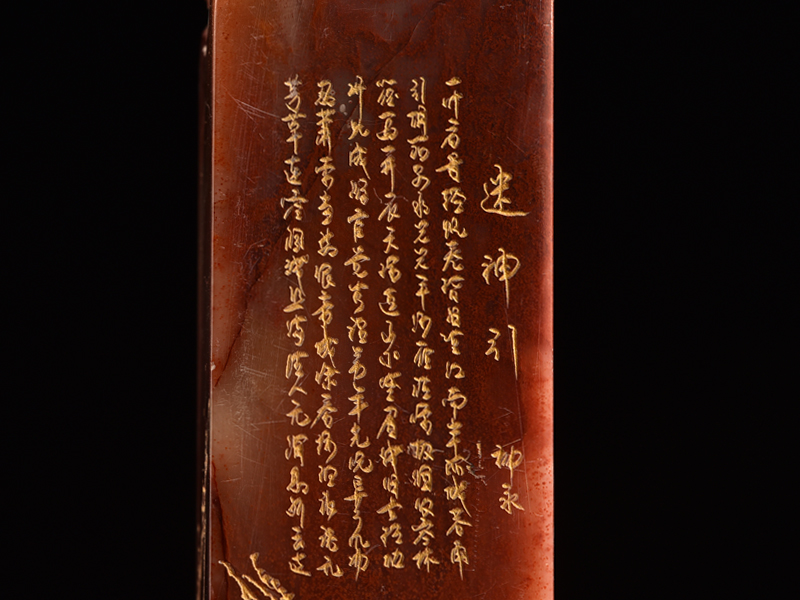 迷神引 柳永
一叶扁舟轻帆卷暂泊楚江南岸孤城暮角
引胡笳怨水茫茫平沙雁旋惊散烟敛寒林
簇画屏展天际遥山小黛眉浅旧赏轻抛
到此成游宦觉客程劳年光晚异乡风物
忍萧索当愁眼帝城赊秦楼阻旅魂乱
芳草连空阔残照满佳人无消息断云远